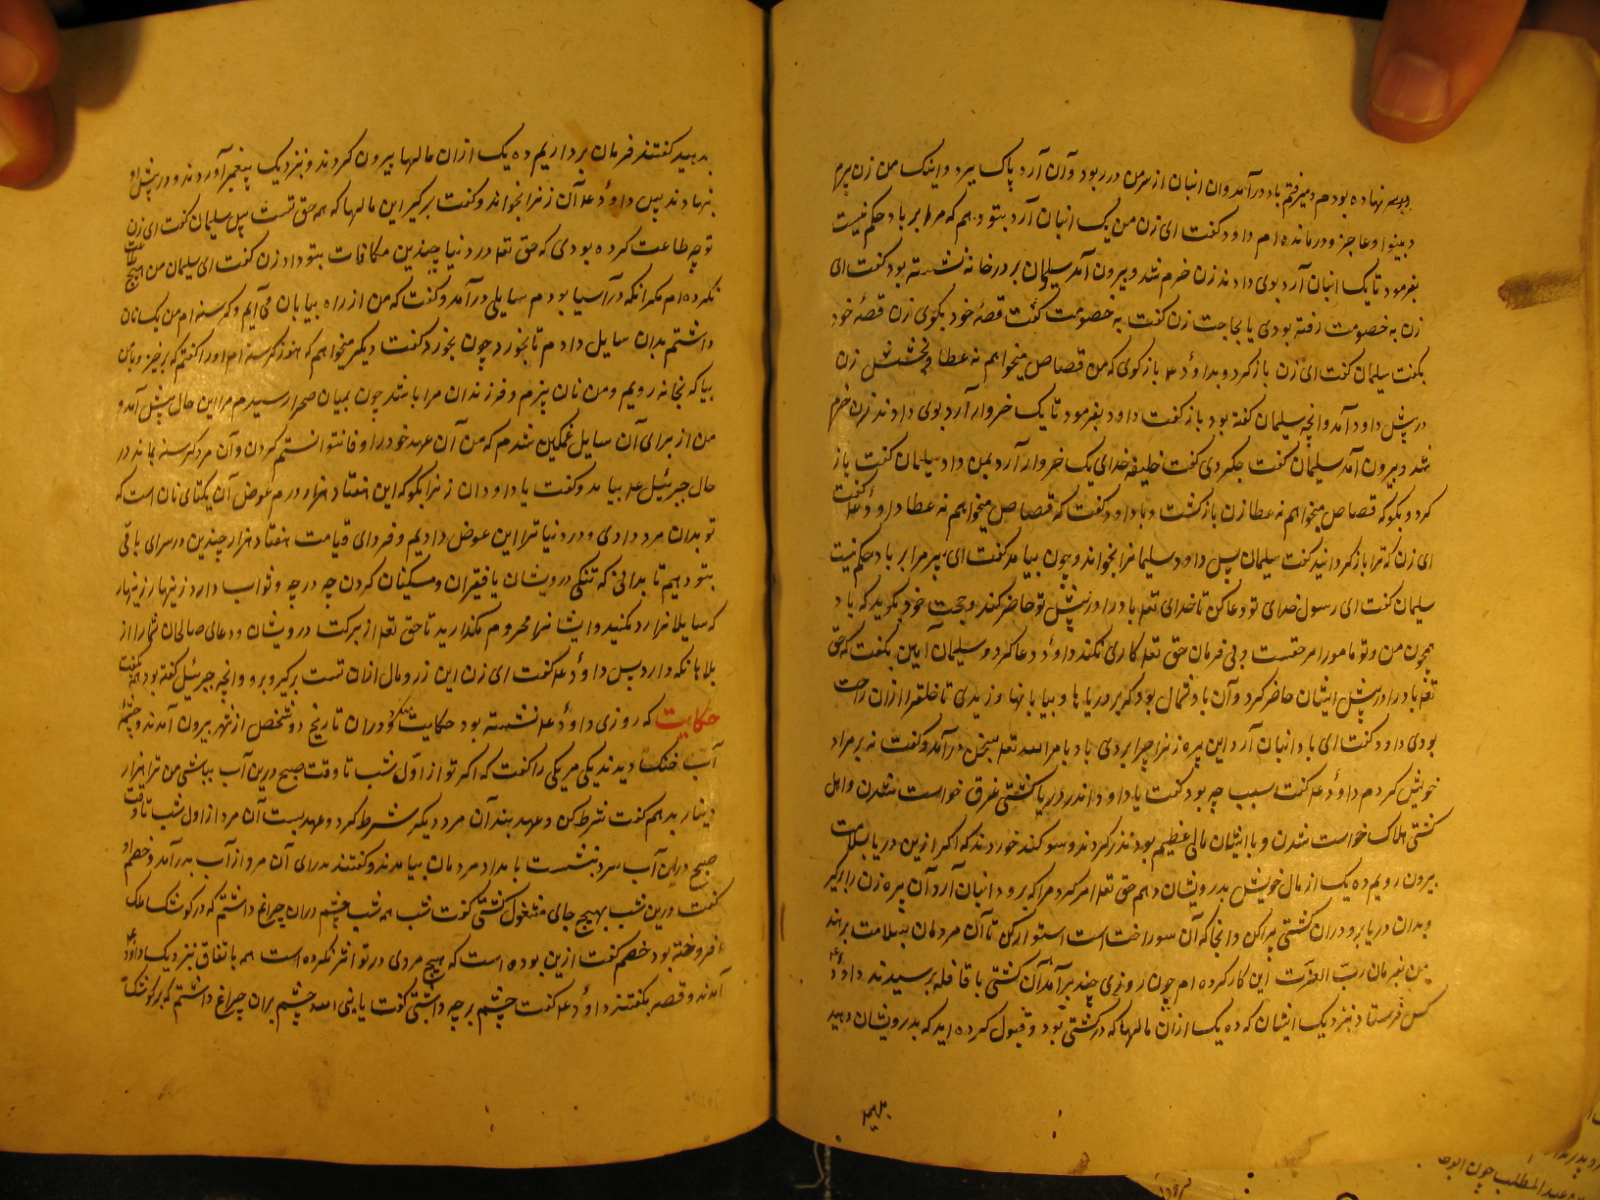 بر سر نهاده بودم و میرفتم باد درآمد و ان انبان از سر من در ربود و آن آرد پاک ببرد و اینک من زن پیرم
و بینوا و عاجز و درمانده ام داود گفت ای زن من یک انبان آرد بتو دهم که مرا بر باد حکم نیست
بفرمود تا یک انبان آرد بوی دادند زن خرم شد و بیرون آمد سلیمان بر در خانه نشسته بود گفت ای
زن به خصومت رفته بودی یا بحاجت زن گفت به خصومت گفت قصهٔ خود بگوی زن قصهٔ خود
بگفت سلیمان گفت ای زن باز گرد و بداود ع م باز گوی که من قصاص میخواهم نه عطا و بخشش زن
در پیش داود آمد و انچه سلیمان گفته بود باز گفت داود بفرمود تا یک خروار آرد بوی دادند زن خرم
شد و بیرون آمد سلیمان گفت چکردی گفت خلیفه خدای یک خروار آرد بمن داد سلیمان گفت باز
گرد و بگو که قصاص میخواهم نه عطا زن باز گشت و با داود گفت که قصاص میخواهم نه عطا داود ع م گفت
ای زن که ترا باز گردانید گفت سلیمان پس داود سلیمانرا بخواند و چون بیامد گفت ای پسر مرا بر باد حکم نیست
سلیمان گفت ای رسول خدای تو دعا کن تا خدای تعا باد را در پیش تو حاضر کند و حجت خود بگوید که باد
همچون من و تو مامور امر حقست و بی فرمان حق تعا کاری نکند داود دعا کرد و سلیمان آمین بگفت که حق
تعا باد را در پیش ایشان حاضر کرد و آن باد شمال بود که بر دریاها و بیابانها وزیدی تا خلق را ازان راحت
بودی داود گفت ای باد انبان آرد این پیره زن را چرا بردی باد بامر الله تعا بسخن درآمد و گفت نه بر مراد
خویش کردم داود ع م گفت سبب چه بود گفت یا داود اندر دریا کشتی غرق خواست شدن و اهل
کشتی هلاک خواست شدن و با ایشان مالی عظیم بود نذر کردند و سوگند خوردند که اگر ازین دریا بسلامت
بیرون رویم ده یک از مال خویش بدرویشان دهیم حق تعا امر کرد مرا که برو و انبان آرد آن پیره زن را برگیر
و بدان دریا برو و دران کشتی پراکن و انجا که آن سوراخست است استوار کن تا آن مردمان بسلامت برهند
من بفرمان رب العزت این کار کرده ام چون روزی چند برآمد آن کشتی با قافله برسیدند داود ع م
کس فرستاد بنزدیک ایشان که ده یک ازان مالها که در کشتی بود و قبول کرده اید که بدرویشان دهید
بدهید
بدهید گفتند فرمان برداریم ده یک ازان مالها بیرون کردند و بنزدیک پیغمبر آوردند و در پیش او
نهادند پس داود ع م آن زنرا بخواند و گفت برگیر این مالها که همه حق تست پس سلیمان گفت ای زن
تو چه طاعت کرده بودی که حق تعا در دنیا چندین مکافات بتو داد زن گفت ای سلیمان من هیچ طاعت
نکرده ام مگر انکه در آسیا بودم سایلی درآمد و گفت که من از راه بیابان می آیم و گرسنه ام من یک نان
داشتم بدان سایل دادم تا بخورد چون بخورد گفت دیگر میخواهم که هنوز گرسنه ام او را گفتم که برخیز و با من
بیا که بخانه رویم و من نان پزم و فرزندان مرا باشد چون بمیان صحرا رسیدم مرا این حال پیش آمد و
من از برای آن سایل غمگین شدم که من آن عهد خود را وفا نتوانستم کردن و آن مرد گرسنه بماند در
حال جبرئیل ع م بیامد و گفت یا داود ان زنرا بگو که این هفتاد هزار درم عوض آن یکتای نان است که
تو بدان مرد دادی و در دنیا ترا این عوض دادیم و فردای قیامت هفتاد هزار چندین در سرای باقی
بتو دهیم تا بدانی که تنگی درویشان یا فقیران و مسکینان کردن چه درجه و ثواب دارد زینهار زینهار
که سایلانرا رد مکنید و ایشانرا محروم مگذارید تا حق تعا از برکت درویشان و دعای صالحان شما را از
بلاها نگه دارد پس داود ع م گفت ای زن این زر و مال ازان تست برگیر و برو و انچه جبرئیل گفته بود همه بگفت
حکایت که روزی داود ع م نشسته بود حکایت میکرد که دران تاریخ دو شخص از شهر بیرون آمدند و چشمهٔ
آب خنک دیدند یکی مر یکی را گفت که اگر تو از اول شب تا وقت صبح درین آب بباشی من ترا هزار
دینار بدهم گفت شرط کن و عهد بند آن مرد دیگر شرط کرد و عهد بست آن مرد از اول شب تا وقت
صبح در این آب سرد بنشست بامداد مردمان بیامدند و گفتند مر رای آن مرد از آب بدر آمد و خصم او
گفت درین شب بهیچ جای مشغول گشتی گفت شب همه شب چشم دران چراغ داشتم که در کوشک ملک
افروخته بود خصم گفت ازین بوده است که هیچ سردی در تو اثر نکرده است همه باتفاق بنزدیک داود ع م
آمدند و قصه بگفتند داود ع م گفت چشم بر چه داشتی گفت یا نبی الله چشم بران چراغ داشتم که بر کوشک